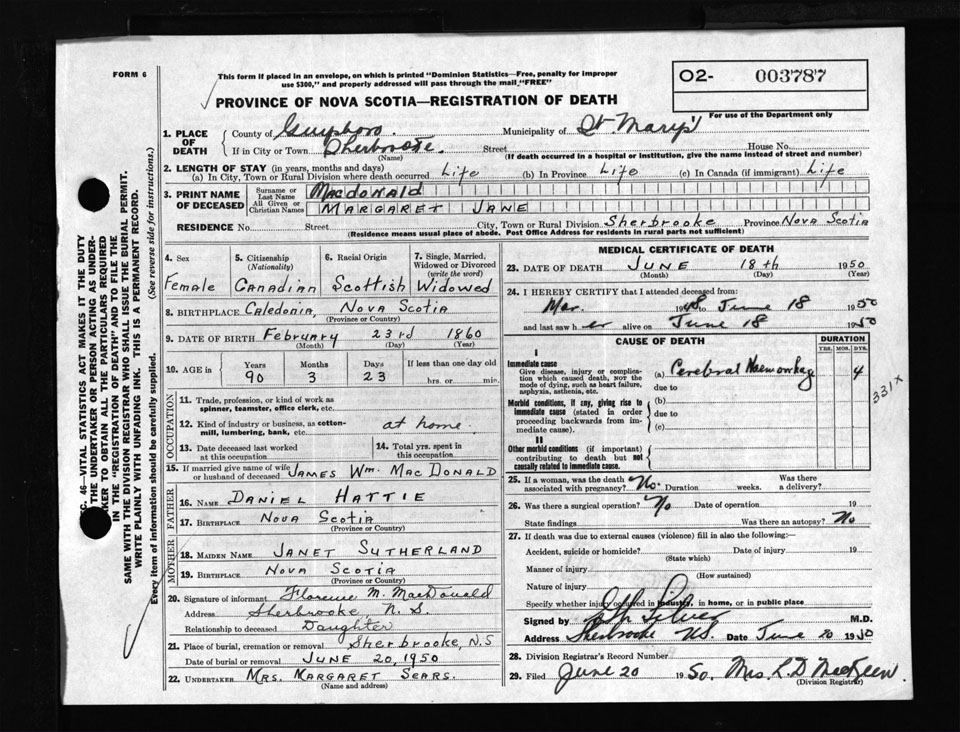 FORM 6
This form if placed in an envelope, on which is printed "Dominion Statistics—Free, penalty for improper
use $300," and properly addressed will pass through the mail "FREE"
O2- 003787
PROVINCE OF NOVA SCOTIA—REGISTRATION OF DEATH
For use of the Department only
1. PLACE OF DEATH
County of Guysboro. Municipality of St. Mary's
If in City or Town Sherbrooke. Street House No.
(Name) (If death occurred in a hospital or institution, give the name instead of street and number)
2. LENGTH OF STAY (in years, months and days)
(a) In City, Town or Rural Division where death occurred Life (b) In Province Life (c) In Canada (if immigrant) Life
3. PRINT NAME OF DECEASED
Surname or Last Name MacDONALD
All Given or Christian Names MARGARET JANE
RESIDENCE No. Street City, Town or Rural Division Sherbrooke Province Nova Scotia
(Residence means usual place of abode. Post Office Address for residents in rural parts not sufficient)
4. Sex
Female
5. Citizenship
(Nationality)
Canadian
6. Racial Origin
Scottish
7. Single, Married, Widowed or Divorced
(write the word)
Widowed
8. BIRTHPLACE Caledonia, Nova Scotia
(Province or Country)
9. DATE OF BIRTH February 23rd 1860
(Month) (Day) (Year)
10. AGE in Years Months Days If less than one day old
90 3 23 hrs. or min.
OCCUPATION
11. Trade, profession, or kind of work as
spinner, teamster, office clerk, etc.
12. Kind of industry or business, as cotton-
mill, lumbering, bank, etc. at home.
13. Date deceased last worked
at this occupation
14. Total yrs. spent in
this occupation
15. If married give name of wife
or husband of deceased JAMES Wm. MacDONALD
FATHER
16. NAME DANIEL HATTIE
17. BIRTHPLACE NOVA SCOTIA
(Province or Country)
MOTHER
18. MAIDEN NAME JANET SUTHERLAND
19. BIRTHPLACE NOVA SCOTIA
(Province or Country)
20. Signature of informant Florence M. MacDonald
Address Sherbrooke N.S.
Relationship to deceased Daughter
21. Place of burial, cremation or removal Sherbrooke, N.S
Date of burial or removal JUNE 20, 1950
22. UNDERTAKER MRS. MARGARET SEARS.
(Name and address)
MEDICAL CERTIFICATE OF DEATH
23. DATE OF DEATH JUNE 18th 1950
(Month) (Day) (Year)
24. I HEREBY CERTIFY that I attended deceased from:
Mar. 1948 to June 18 1950
and last saw her alive on June 18 1950
CAUSE OF DEATH DURATION
YRS. MOS. DYS.
I
Immediate cause
Give disease, injury or complication which caused death, not the mode of dying, such as heart failure, asphyxia, asthenia, etc.
(a) Cerebral Haemorrhage 4
due to
331X
Morbid conditions, if any, giving rise to immediate cause (stated in order proceeding backwards from immediate cause).
(b)
due to
(c)
II
Other morbid conditions (if important) contributing to death but not causally related to immediate cause.
25. If a woman, was the death
associated with pregnancy? No. Duration weeks. Was there
a delivery?
26. Was there a surgical operation? No Date of operation 19
State findings Was there an autopsy? No
27. If death was due to external causes (violence) fill in also the following:—
Accident, suicide or homicide? Date of injury 19
(State which)
Manner of injury
(How sustained)
Nature of injury
Specify whether injury occurred in industry, in home, or in public place
Signed by M.D.
Address Sherbrooke NS. Date June 20 1950
28. Division Registrar's Record Number
29. Filed June 20 1950. Mrs. L.D MacKeen
(Division Registrar)
SEC. 46—VITAL STATISTICS ACT MAKES IT THE DUTY
THE UNDERTAKER OR PERSON ACTING AS UNDER-
KER TO OBTAIN ALL THE PARTICULARS REQUIRED
IN THE "REGISTRATION OF DEATH" AND TO FILE THE
SAME WITH THE DIVISION REGISTRAR WHO SHALL ISSUE THE BURIAL PERMIT.
WRITE PLAINLY WITH UNFADING INK. THIS IS A PERMANENT RECORD.
Every item of information should be carefully supplied. (See reverse side for instructions.)